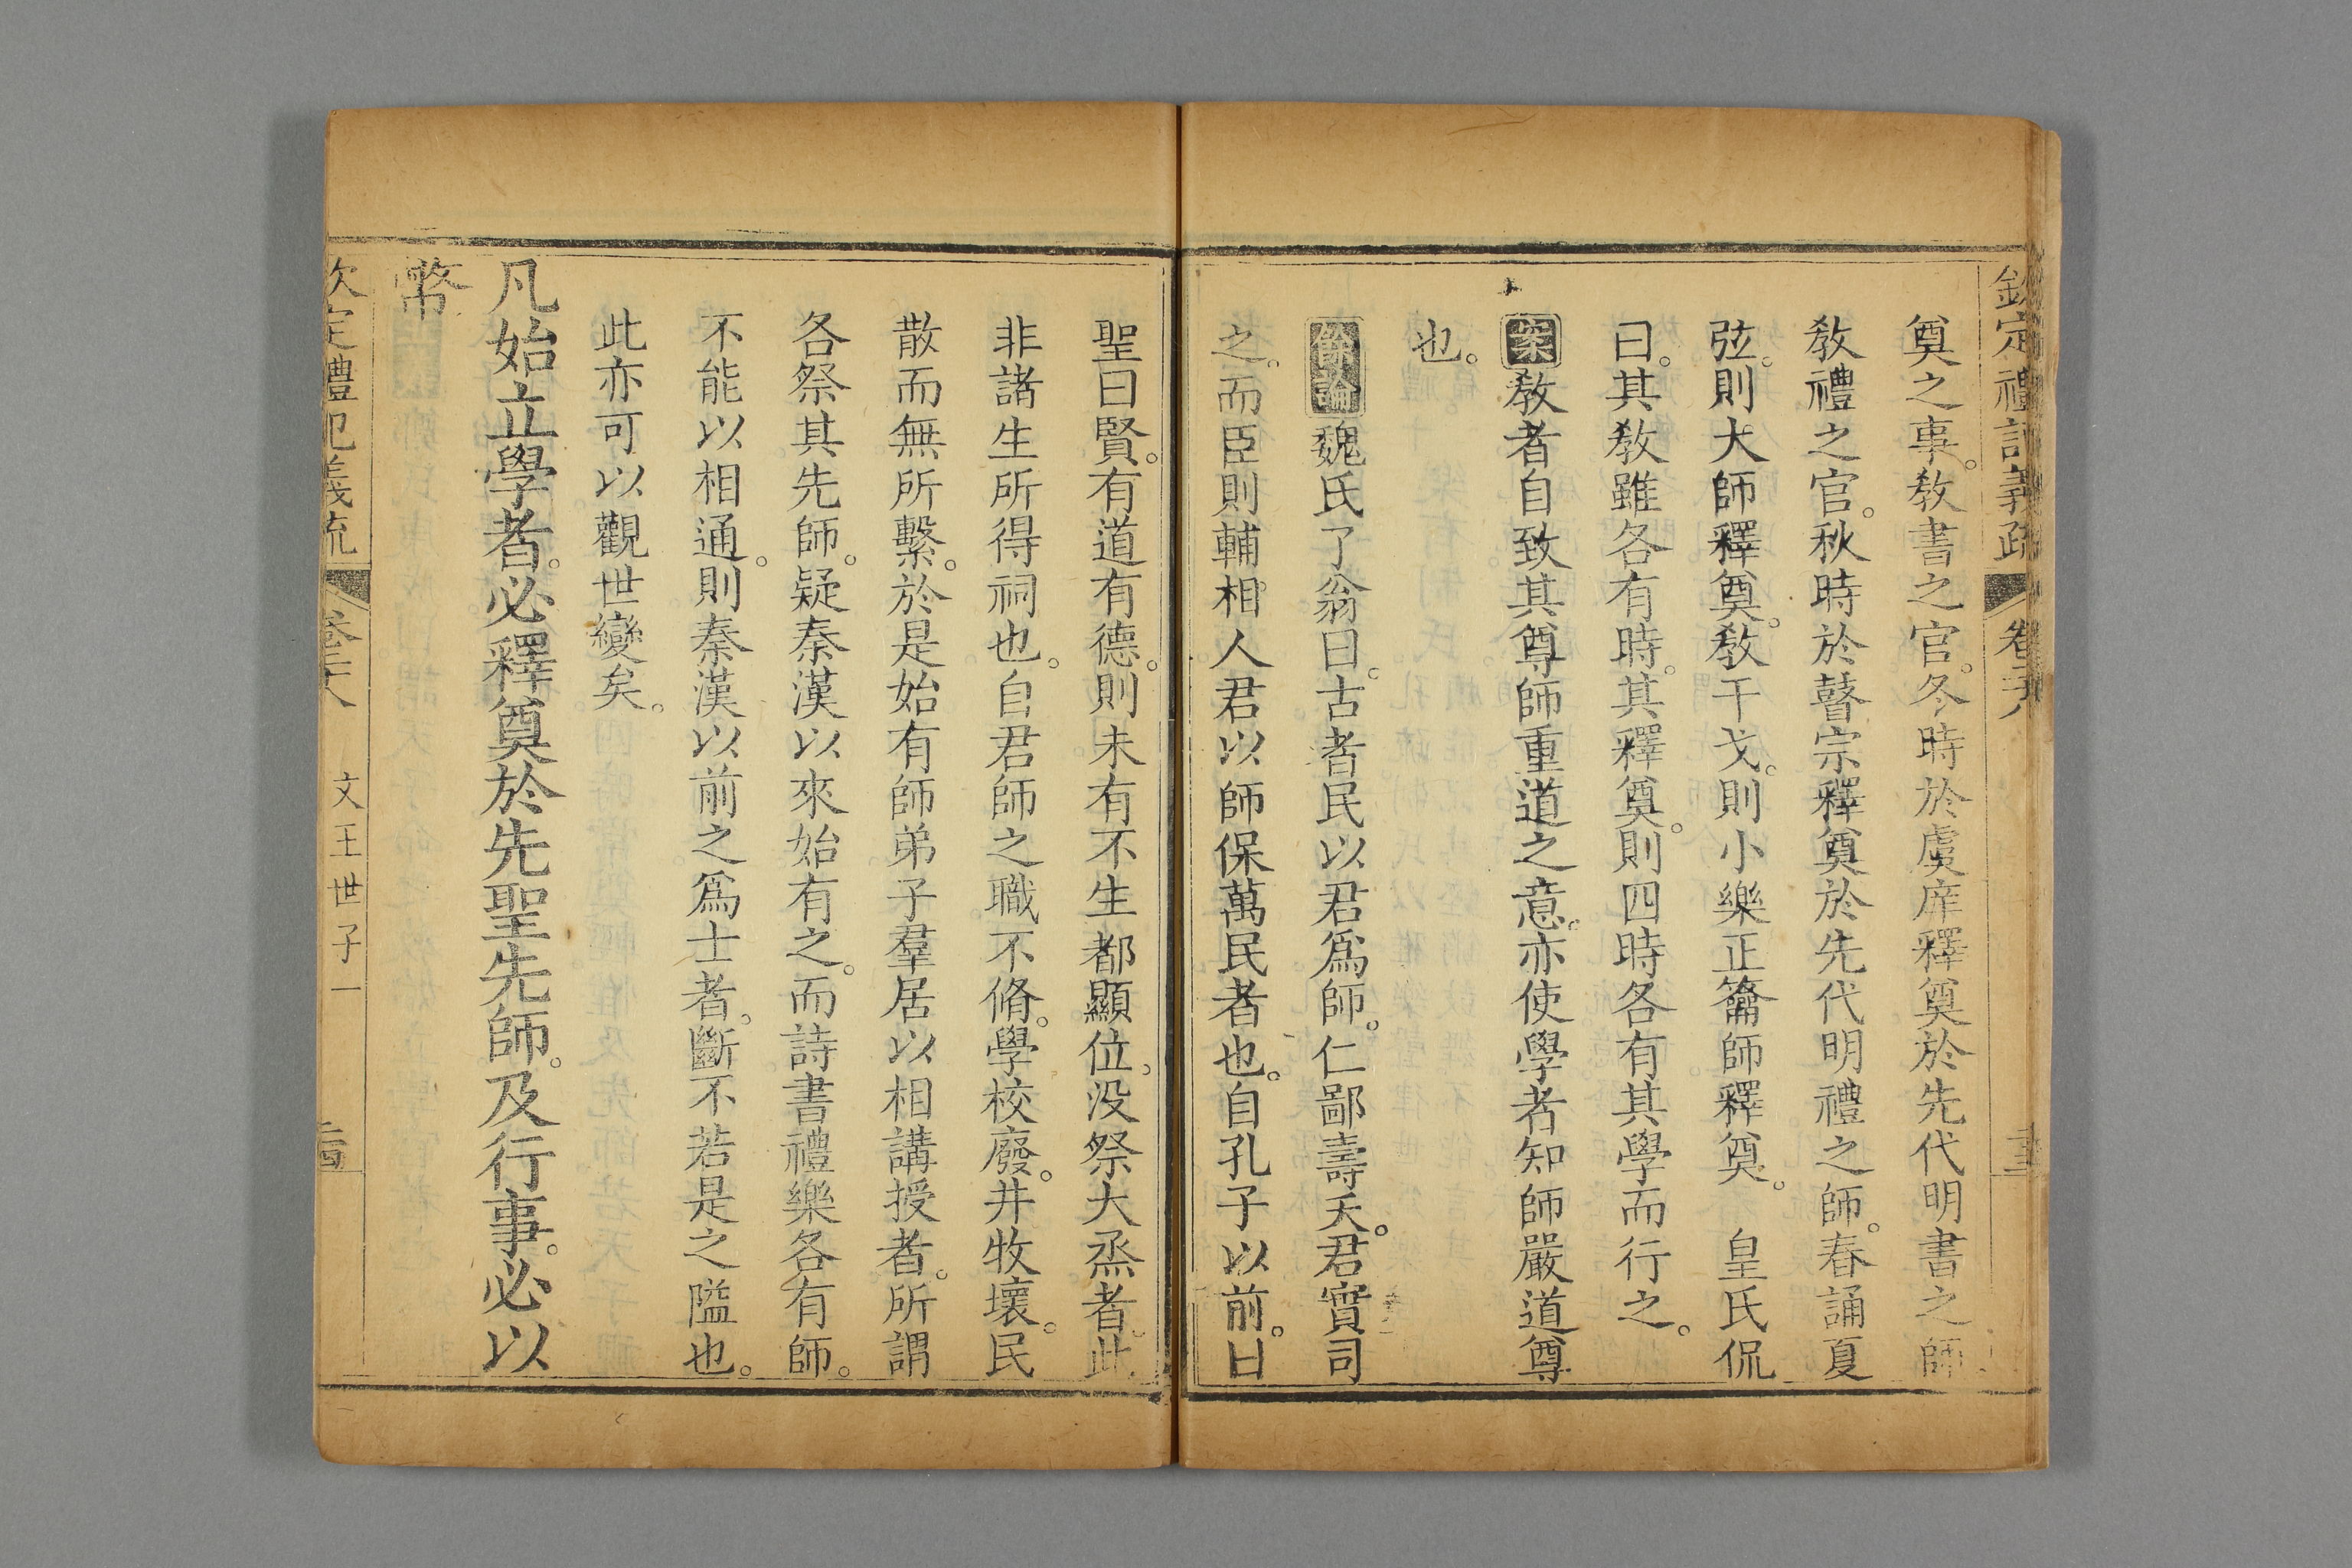 欽定禮記義疏 卷二十八
奠之事。敎書之官。冬時於虞庠釋奠於先代明書之師
敎禮之官。秋時於瞽宗釋奠於先代明禮之師。春誦夏
弦。則大師釋奠。敎干戈。則小樂正籥師釋奠。 皇氏侃
曰。其敎雖各有時。其釋奠。則四時各有其學而行之。
案敎者自致其尊師重道之意。亦使學者知師嚴道尊
也。
餘論魏氏了翁曰。古者民以君爲師。仁鄙壽夭。君實司
之。而臣則輔相人君以師保萬民者也。自孔子以前。曰
聖曰賢。有道有德。則未有不生都顯位。沒祭大烝者。此
非諸生所得祠也。自君師之職不脩。學校廢。井牧壞。民
散而無所繫。於是始有師弟子羣居以相講授者。所謂
各祭其先師。疑秦漢以來始有之。而詩書禮樂各有師。
不能以相通。則秦漢以前之爲士者。斷不若是之隘也。
此亦可以觀世變矣。
凡始立學者。必釋奠於先聖先師。及行事。必以
幣
欽定禮記義疏 卷二十八 文王世子一